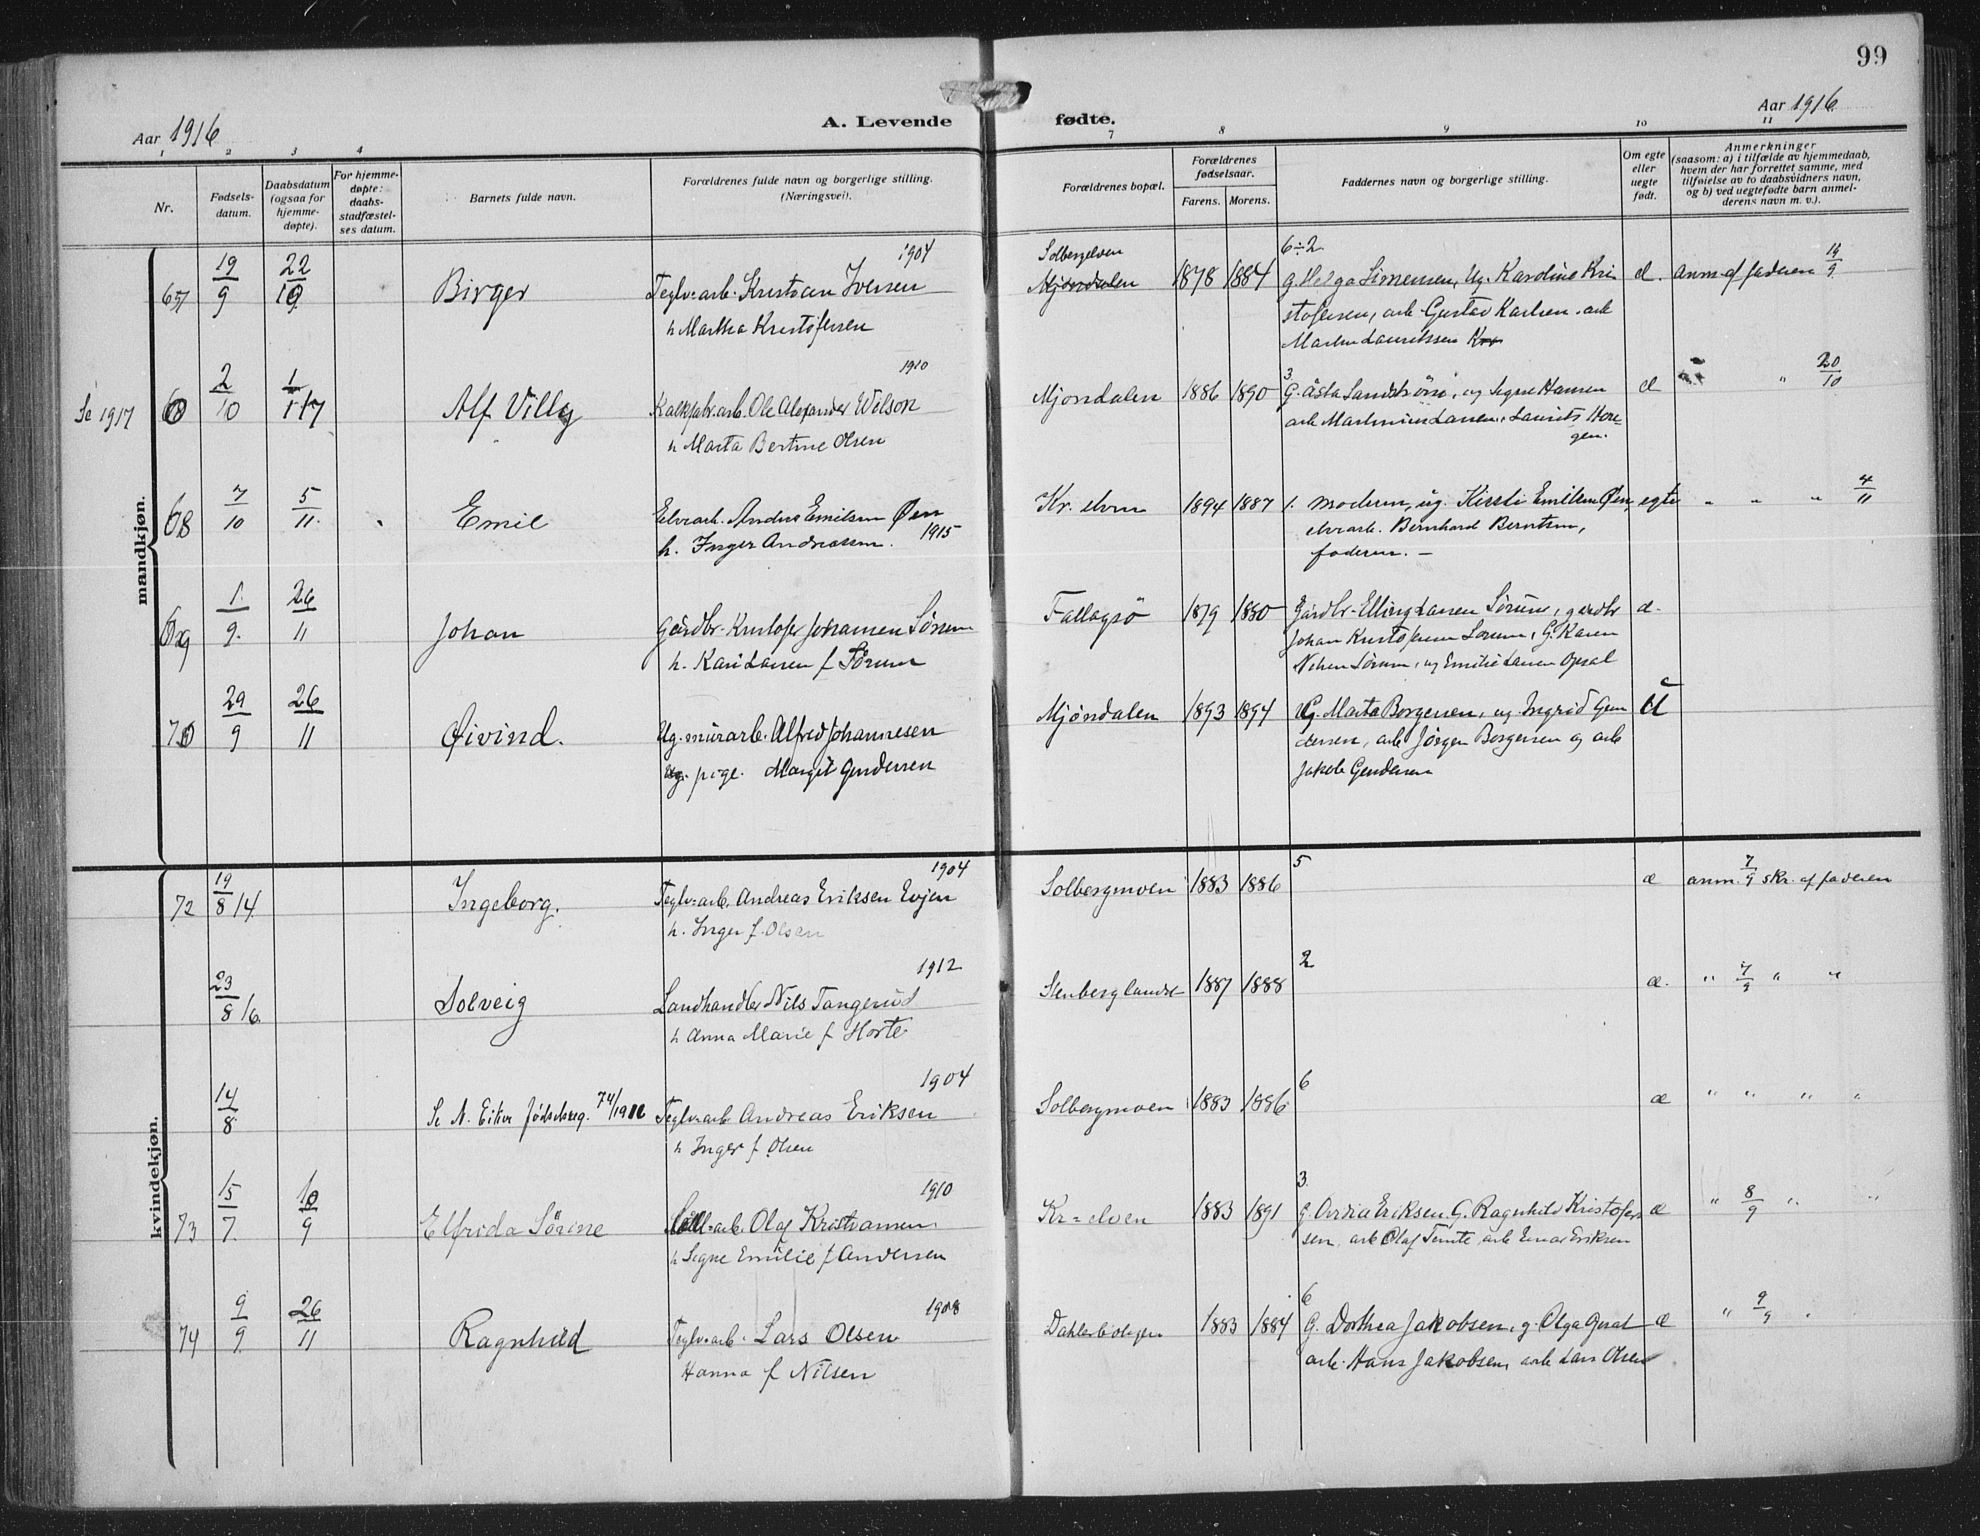 99
Aar 1916
A. Levende fødte.
Aar 1916
1 2 3 4 7 8 9 10 11
Nr.
Fødsels-
datum.
Daabsdatum
(ogsaa for
hjemme-
døpte).
For hjemme-
døpte:
daabs-
stadfæstel-
ses datum.
Barnets fulde navn.
Forældrenes fulde navn og borgerlige stilling.
(Næringsvei).
Forældrenes bopæl.
Forældrenes
fødselsaar.
Farens. Morens.
Faddernes navn og borgerlige stilling.
Om egte
eller
uegte
født.
Anmerkninger
(saasom: a) i tilfælde av hjemmedaab,
hvem der har forrettet samme, med
tilføielse av to daabsvidners navn,
og b) ved uegtefødte barn anmel-
derens navn m. v.).
mandkjøn.
67 19/9 22/10 Birger
1904
Teglv.arb. Kristian Iversen
h Martha Kristofersen
Solbergelven
Mjøndalen 1878 1884
6÷2.
G. Helga Simensen, Ug. Karoline Kri
stofersen, arb. Gustav Karlsen. arb
Martin Lauritssen
æ. anm. af faderen 19/9
Se 1917 2/10 1/1 17 Alf Villy
1910
Kalkfabr.arb. Ole Alexander Wilson
h Marta Bertine Olsen
Mjøndalen 1886 1890
3
G. Åsta Sandstrøm, ug Signe Hansen
arb Martinius Larsen, Laurits
æ " 20/10
68 7/10 5/11. Emil
Elvearb. Anders Emilsen Øen
1915
h. Inger Andreassen.
Kr. elven 1894 1887
1. moderen, ug. Kirsti Emilsen Øen,
elvearb. Bernhard Berntsen,
faderen. —
egte " " " 4/11
69 1./9. 26/11 Johan
Gårdbr. Kristofer Johansen Sørum
h. Kari Larsen f Sørum
Fallagsø 1879 1880
Gårdbr. Elling Larsen Sørum, gårdbr
Johan Kristofersen Sørum, G. Karen
Nilsen Sørum, ug Emilie Larsen Opsal
æ.
70 29/9 26/11 Øivind.
Ug. murarb. Alfred Johannesen
Ug. pige. Margit Gundersen
Mjøndalen 1893 1894
Ug. Marta Borgersen, ug Ingrid Gun
dersen, arb Jørgen Borgersen og arb
Jakob Gundersen
U
kvindekjøn.
72 19/8 14 Ingeborg.
1904
Teglv.arb. Andreas Eriksen Evjen
h. Inger f. Olsen
Solbergmoen 1883 1886
5
æ anm. 7/9 skr. af faderen
23/8 16 Solveig
1912
Landhandler Nils Tangerud
h Anna Marie f Horte
Stenberglandet 1887 1888
2
æ. " 7/9 " "
14/8 Se N. Eiker fødselsreg. 74/1916
1904
Teglv.arb Andreas Eriksen
h Inger f Olsen
Solbergmoen 1883 1886
6
æ " " " "
73 15/7 10/9 Elfrida Sørine
1910
Cell.arb. Olaf Kristiansen
h Signe Emilie f Andersen
Kr=elven 1883 1891
3.
G. Ovidia Eriksen. G. Ragnhild Kristofer
sen, arb Olaf Temte, arb Einar Eriksen
æ " 8/9 " "
74 9/9. 26/11 Ragnhild
1908
Teglv.arb. Lars Olsen
Hanna f Nilsen
Dahlerboligen 1883 1884
6
G. Dorthea Jakobsen, g. Olga
arb. Hans Jakobsen, arb Lars Olsen
æ " 9/9 "